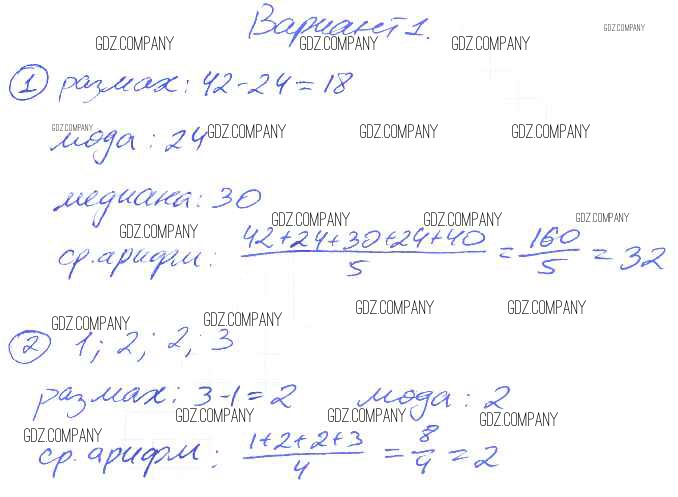 Вариант 1.
GDZ.COMPANY GDZ.COMPANY GDZ.COMPANY GDZ.COMPANY
1 размах: 42-24=18
GDZ.COMPANY GDZ.COMPANY GDZ.COMPANY GDZ.COMPANY
мода: 24
медиана: 30
GDZ.COMPANY GDZ.COMPANY GDZ.COMPANY GDZ.COMPANY
ср.арифм: (42+24+30+24+40)/5 = 160/5 = 32
GDZ.COMPANY GDZ.COMPANY GDZ.COMPANY GDZ.COMPANY
2 1; 2; 2; 3
размах: 3-1=2 мода: 2
GDZ.COMPANY GDZ.COMPANY GDZ.COMPANY GDZ.COMPANY
ср.арифм: (1+2+2+3)/4 = 8/4 = 2